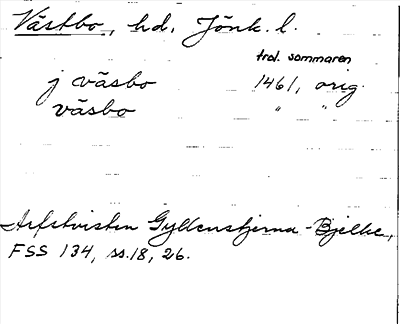 Västbo, hd, Jönk. l.
trol. sommaren
j väsbo 1461, orig.
väsbo " "
Arfstvisten Gyllenstjerna-Bjelke,
FSS 134, ss.18, 26.